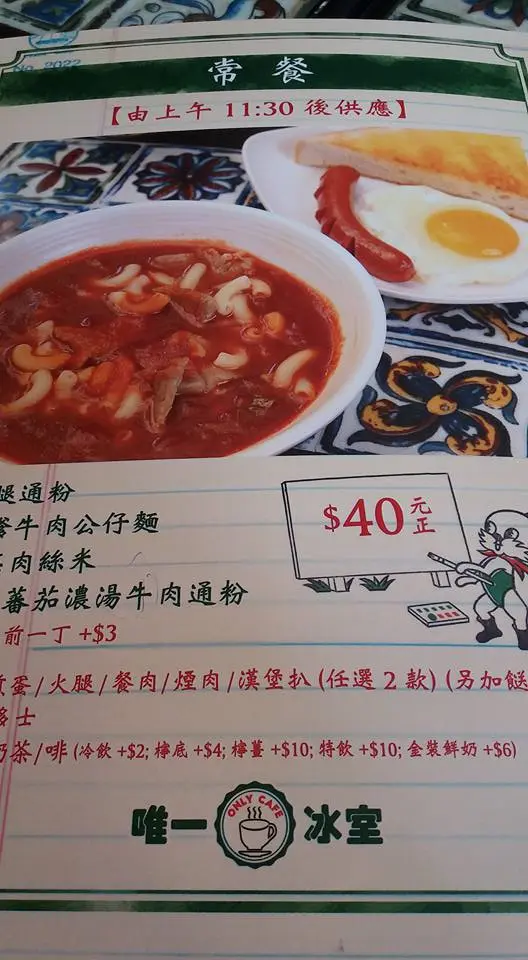 No. 2022
常餐
【由上午 11:30 後供應】
腿通粉
牛肉公仔麵
肉絲米
蕃茄濃湯牛肉通粉
前一丁 +$3
$40元正
蛋/火腿/餐肉/煙肉/漢堡扒 (任選 2 款) (另加餸
多士
奶茶/啡 (冷飲 +$2; 檸底 +$4; 檸薑 +$10; 特飲 +$10; 金裝鮮奶 +$6)
唯一 ONLY CAFE 冰室